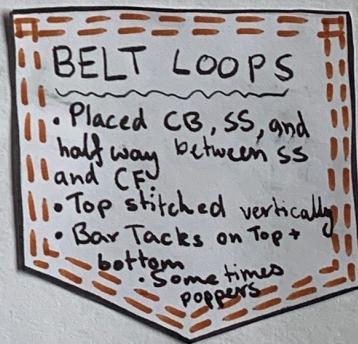 BELT LOOPS
• Placed CB, SS, and
half way between SS
and CF.
• Top stitched vertically
• Bar Tacks on Top +
bottom
• Sometimes
poppers